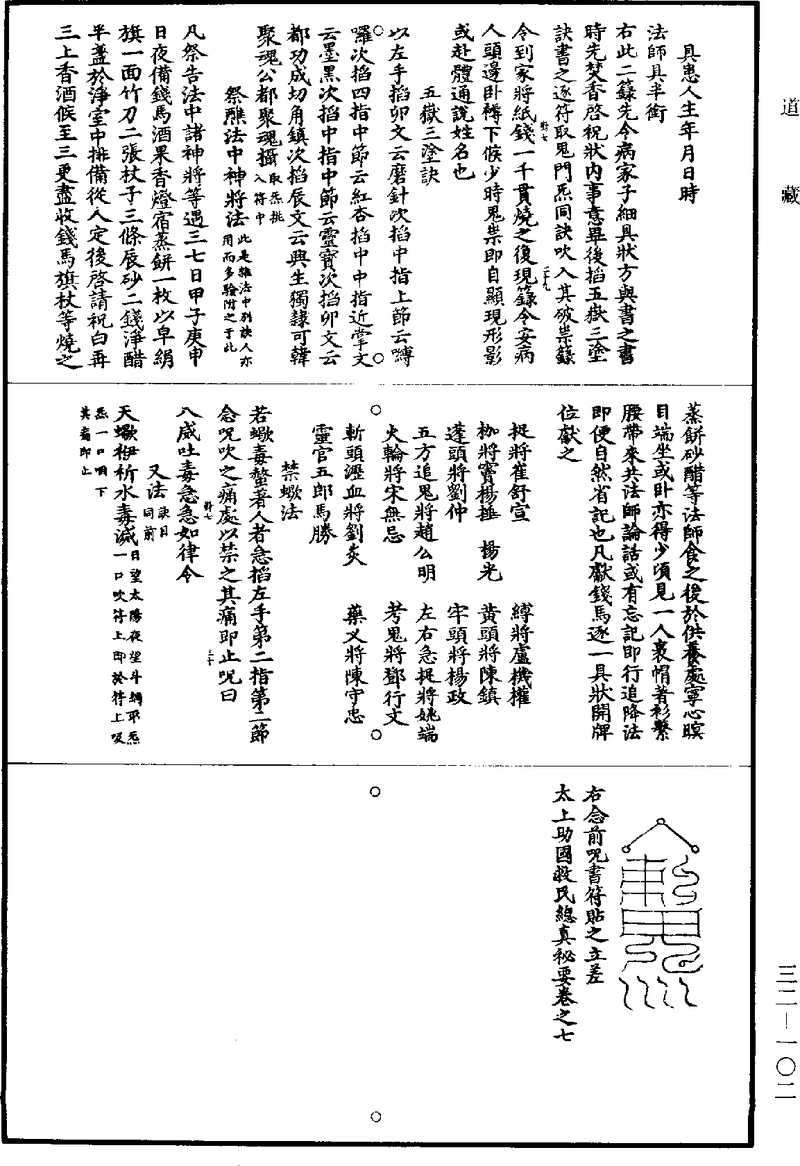 道藏
三二—一〇二
具患人主年月日時
法師具半銜
右此二籙先令病家子細具狀方與書之書
時先焚香啓祝狀內事意畢後掐五嶽三塗
訣書之逐符取鬼門炁同訣吹入其破祟籙
令到家將紙錢一千貫燒之後現籙令安病
人頭邊卧轉下候少時鬼祟即自顯現形影
或赴體通說姓名也
五嶽三塗訣
以左手掐卯文云磨針次掐中指上節云嚩
囉次掐四指中節云紅杏掐中中指近掌文
云墨黑次掐中指中節云靈寶次掐卯文云
都功成切角鎮次掐辰文云興生獨隷可韓
聚魂公都聚魂攝取炁挑入符中
祭醮法中神將法此是雜法中別誤人亦用而多驗附之于此
凡祭告法中諸神將等遇三七日甲子庚申
日夜備錢馬酒果香燈宿蒸餅一枚以皁絹
旗一面竹刀二張杖子三條辰砂二錢淨醋
半盞於淨室中排備從人定後啓請祝白再
三上香酒候至三更盡收錢馬旗杖等燒之
蒸餅砂醋等法師食之後於供養處寧心瞑
目端坐或卧亦得少頃見一人裹帽著衫繫
腰帶來共法師論話或有忘記即行追降法
即便自然省記也凡獻錢馬逐一具狀開牌
位獻之
捉將崔舒宣 縛將盧機權
枷將竇楊捶 楊光 黃頭將陳鎮
蓬頭將劉仲 牢頭將楊政
五方追鬼將趙公明 左右急捉將姚端
火輪將宋無忌 考鬼將鄧行文
斬頭瀝血將劉炎 藥叉將陳守忠
靈官五郎馬勝
禁蠍法
若蠍毒螫著人者急掐左手第二指第二節
念呪吹之痛處以禁之其痛即止呪曰
八威吐毒急急如律令
又法訣目同前
天蠍枬析水毒滅日望太陽夜望斗綱取炁一口吹符上即於符上吸炁一口咽下其毒即止
右念前呪書符貼之立差
太上助國救民總真秘要卷之七